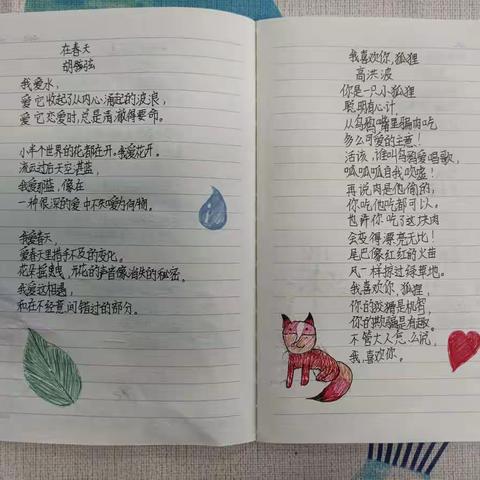 在春天
胡弦
我爱水，
爱它收起了从内心涌起的波浪，
爱它恋爱时总是清澈得要命。
小半个世界的花都在开。我爱花开。
流云过后天空湛蓝，
我爱那蓝，像在
一种很深的爱中不知爱为何物。
我爱春天，
爱春天里措手不及的变化。
花朵摇曳，开花的声音像消失的秘密。
我爱这相遇，
和在不经意间错过的部分。
我喜欢你，狐狸
高洪波
你是一只小狐狸
聪明有心计
从乌鸦嘴里骗肉吃
多么可爱的主意！
活该，谁叫乌鸦爱唱歌，
呱呱呱自我吹嘘！
再说肉是他偷的，
你吃他吃都可以。
也许你吃了这块肉
会变得漂亮无比！
尾巴像红红的火苗
风一样掠过绿草地。
我喜欢你，狐狸
你的狡猾是机智，
你的欺骗是有趣。
不管大人怎么说，
我，喜欢你。